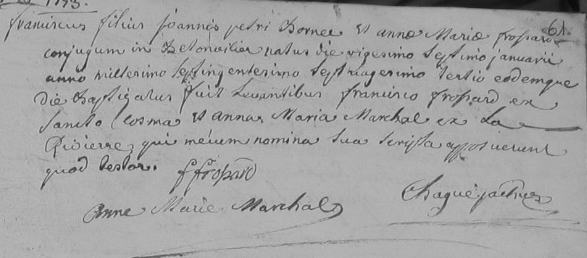 1773.
61.
franciscus filius joannis petri Bornee et annæ Mariæ frossard
conjugum in natus die vigesimo septimo januarii
anno millesimo septingentesimo septuagesimo tertio eodemque
die baptizatus fuit Levantibus francisco frossard ex
Sancto Cosma et anna Maria Marchal ex La
Riviere, qui mecum nomina sua scripta apposuerunt
quod testor. f frossard
Anne Marie Marchal